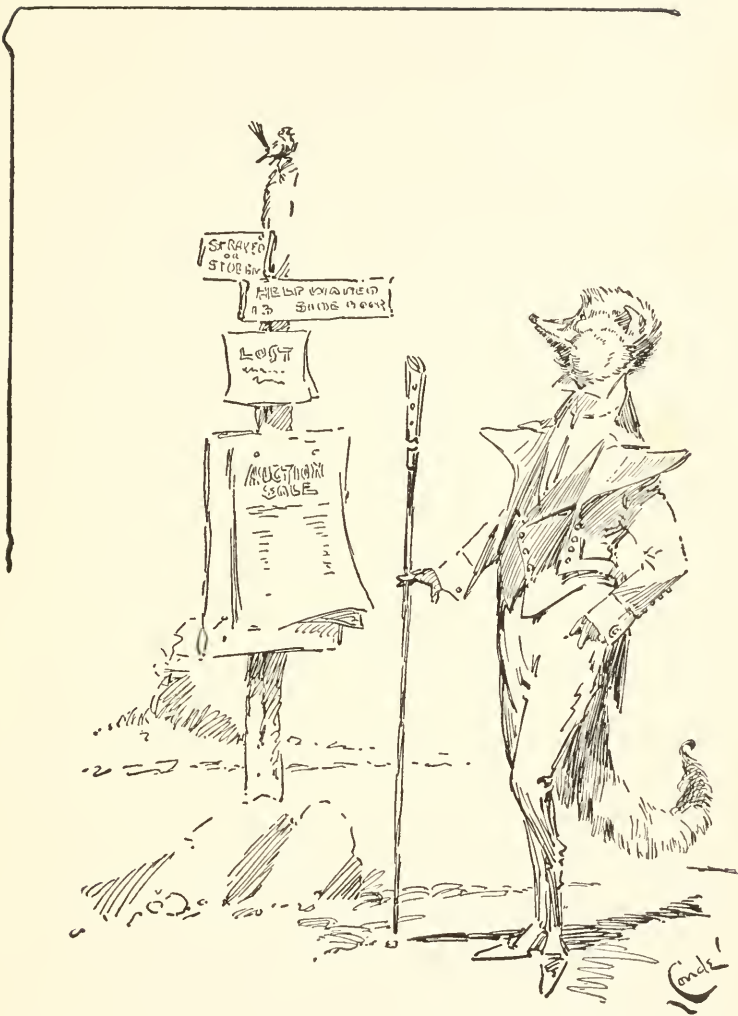 STRAYED
OR
STOLEN
HELP WANTED
LOST
AUCTION
SALE
Condé